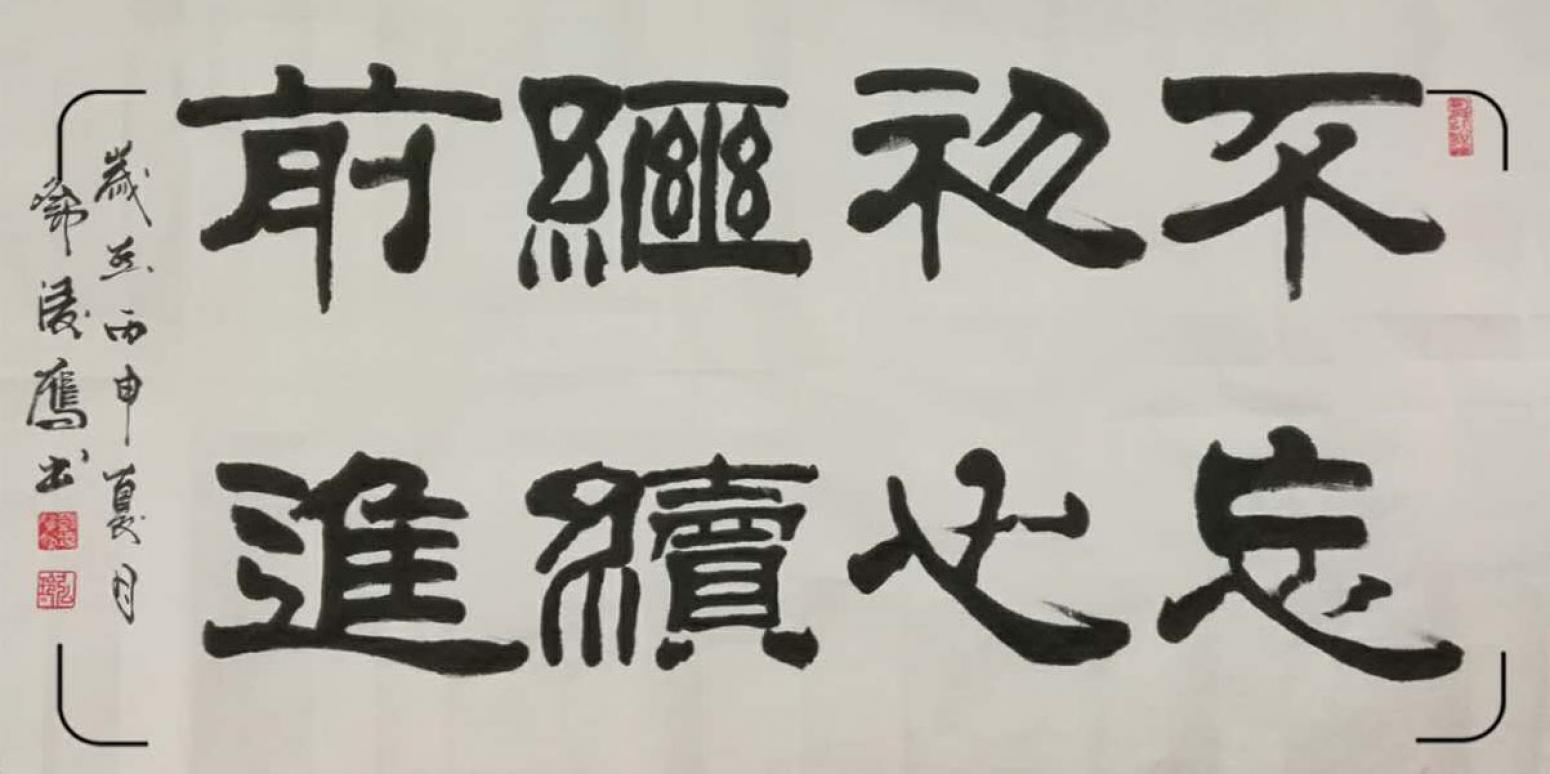 不忘
初心
繼續
前進
歲在丙申夏月
陵鷹书